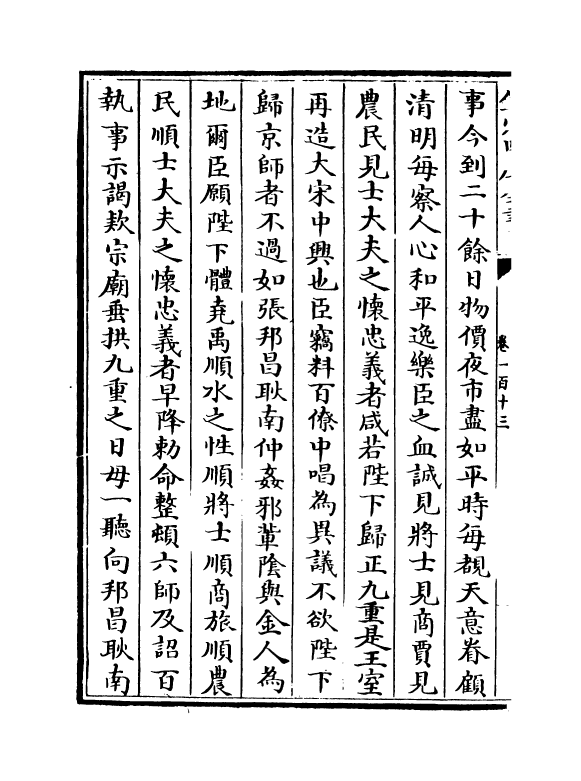 卷一百十三
事今到二十餘日物價夜市盡如平時每覩天意眷顧
清明每察人心和平逸樂臣之血誠見將士見商賈見
農民見士大夫之懷忠義者咸若陛下歸正九重是王室
再造大宋中興也臣竊料百僚中唱為異議不欲陛下
歸京師者不過如張邦昌耿南仲姦邪軰隂與金人為
地爾臣願陛下體堯禹順水之性順將士順商旅順農
民順士大夫之懷忠義者早降勅命整頓六師及詔百
執事示謁欵宗廟垂拱九重之日毋一聽向邦昌耿南